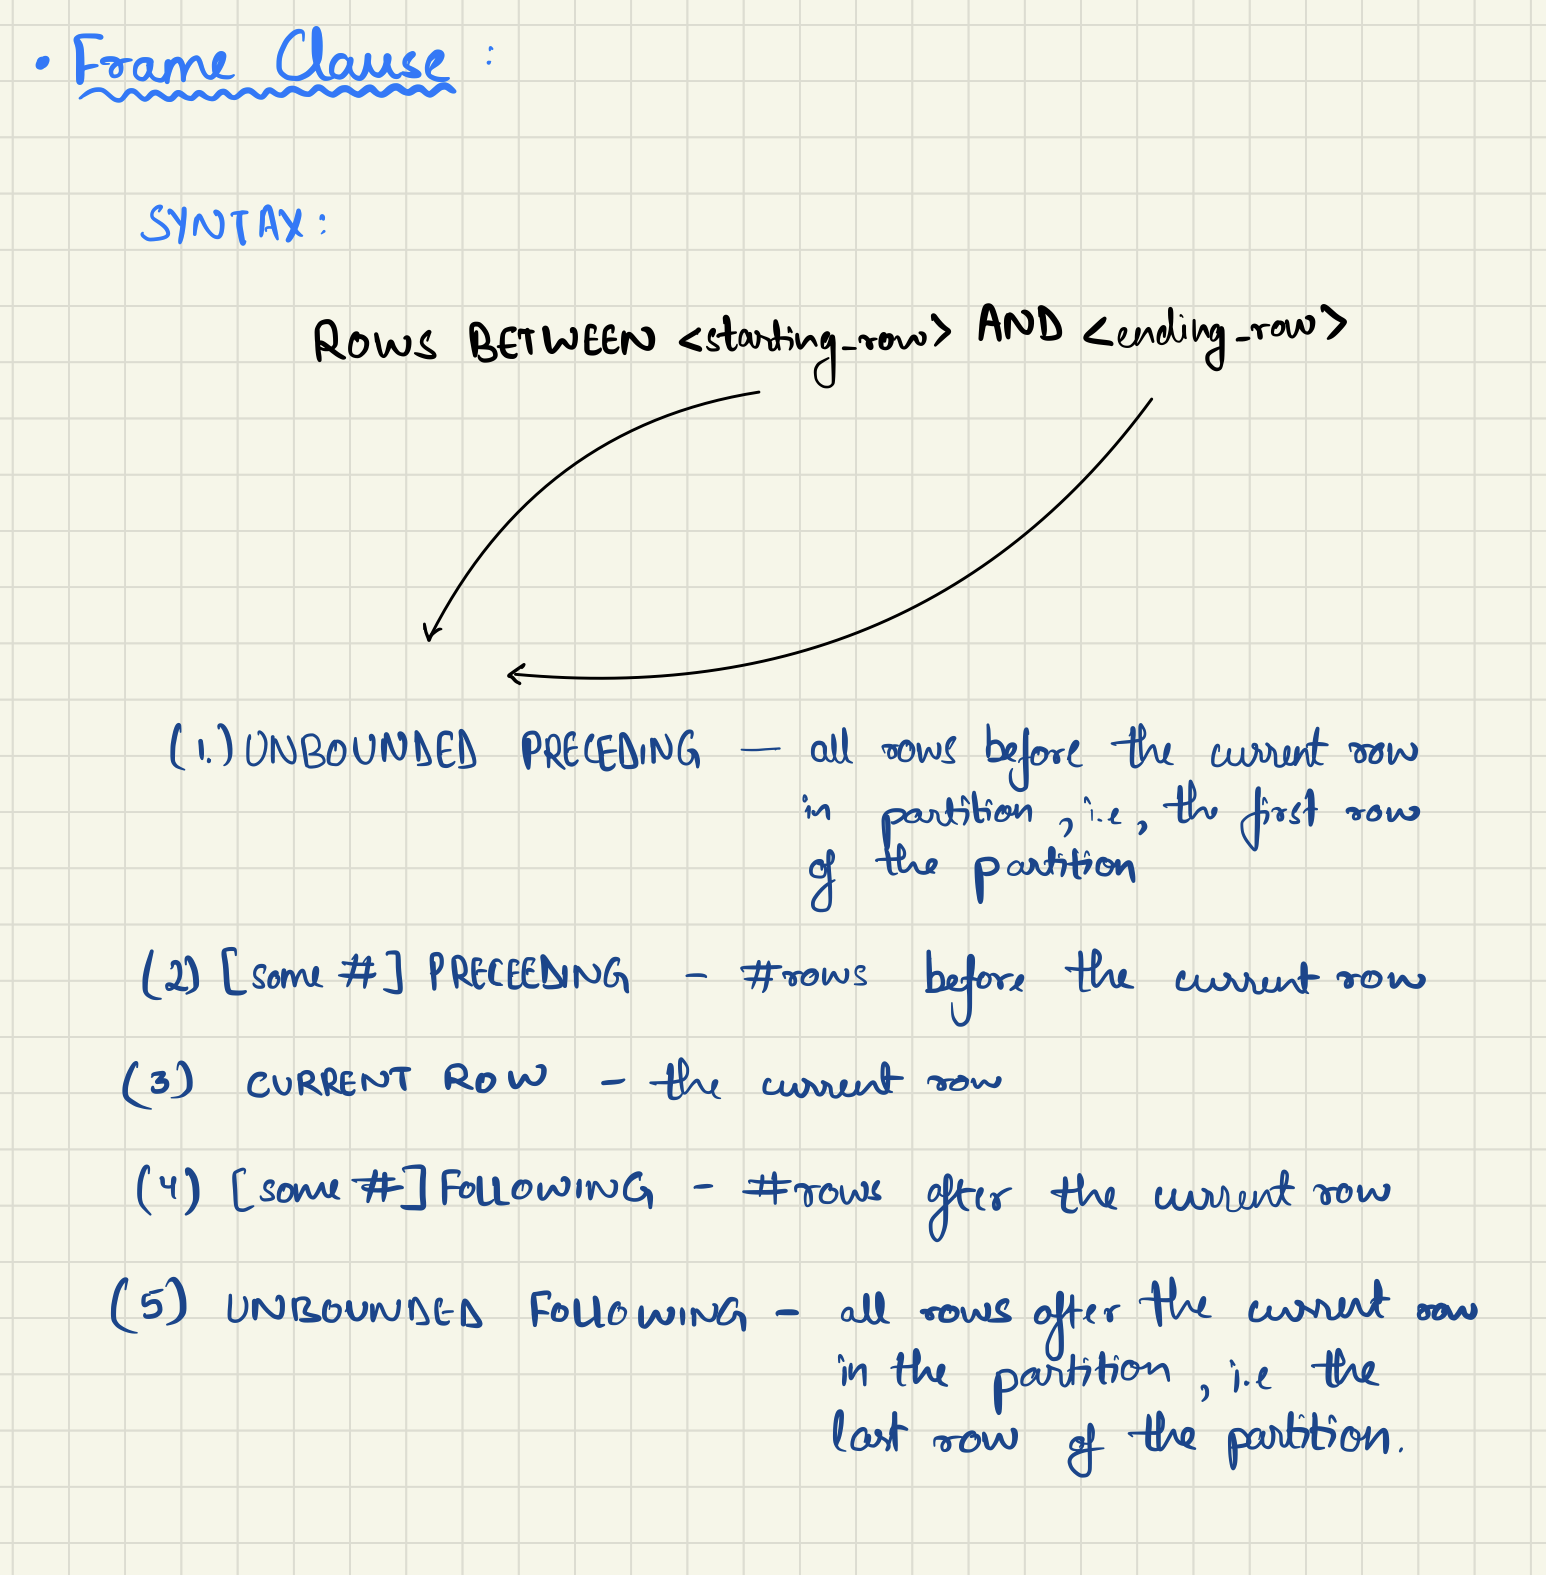 • Frame Clause :
SYNTAX:
ROWS BETWEEN <starting_row> AND <ending_row>
(1.) UNBOUNDED PRECEDING — all rows before the current row
in partition, i.e, the first row
of the partition
(2) [some #] PRECEEDING - #rows before the current row
(3) CURRENT ROW - the current row
(4) [some #] FOLLOWING - #rows after the current row
(5) UNBOUNDED FOLLOWING - all rows after the current row
in the partition, i.e the
last row of the partition.